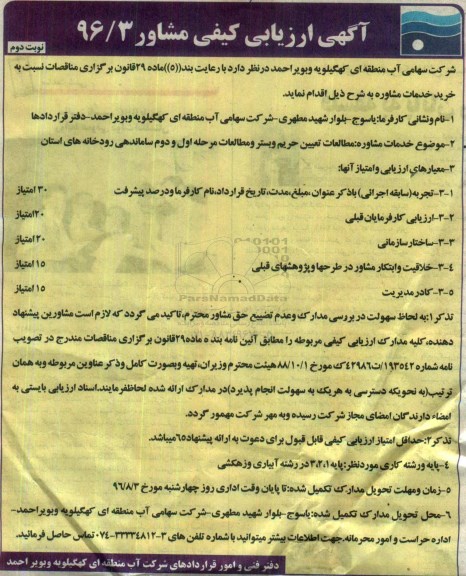 آگهی ارزیابی کیفی مشاور ۹۶/۳
نوبت دوم
شرکت سهامی آب منطقه ای کهگیلویه وبویراحمد درنظر دارد با رعایت بند((ه))ماده ۲۹قانون برگزاری مناقصات نسبت به
خرید خدمات مشاوره به شرح ذیل اقدام نماید.
۱-نام ونشانی کارفرما:یاسوج-بلوار شهید مطهری-شرکت سهامی آب منطقه ای کهگیلویه وبویراحمد-دفتر قراردادها
۲-موضوع خدمات مشاوره:مطالعات تعیین حریم وبستر ومطالعات مرحله اول و دوم ساماندهی رودخانه های استان
۳-معیارهای ارزیابی وامتیاز آنها:
۳-۱-تجربه(سابقه اجرائی) باذکر عنوان ،مبلغ،مدت،تاریخ قرارداد،نام کارفرما ودرصد پیشرفت ۳۰ امتیاز
۳-۲-ارزیابی کارفرمایان قبلی ۲۰امتیاز
۳-۳-ساختار سازمانی ۲۰ امتیاز
۳-۴-خلاقیت وابتکار مشاور در طرحها و پژوهشهای قبلی ۱۵ امتیاز
۳-۵-کادر مدیریت ۱۵ امتیاز
ParsNamadData
تذکر۱:به لحاظ سهولت در بررسی مدارک وعدم تضییع حق مشاور محترم،تاکید می گردد که لازم است مشاورین پیشنهاد
دهنده،کلیه مدارک ارزیابی کیفی مربوطه را مطابق آئین نامه بند ه ماده۲۹قانون برگزاری مناقصات مندرج در تصویب
نامه شماره ۱۹۳۵۴۲/ت۴۲۹۸۶ک مورخ ۸۸/۱۰/۱هیئت محترم وزیران،تهیه وبصورت کامل وذکر عناوین مربوطه وبه همان
ترتیب(به نحویکه دسترسی به هریک به سهولت انجام پذیرد)در مدارک ارائه شده لحاظفرمایند.اسناد ارزیابی بایستی به
امضاء دارندگان امضای مجاز شرکت رسیده وبه مهر شرکت ممهور گردد.
تذکر۲:حداقل امتیاز ارزیابی کیفی قابل قبول برای دعوت به ارائه پیشنهاد۶۵میباشد.
۴-پایه ورشته کاری موردنظر:پایه ۳،۲،۱ در رشته آبیاری وزهکشی
۵-زمان ومهلت تحویل مدارک تکمیل شده:تا پایان وقت اداری روز چهارشنبه مورخ ۹۶/۸/۳
۶-محل تحویل مدارک تکمیل شده:یاسوج-بلوار شهید مطهری-شرکت سهامی آب منطقه ای کهگیلویه وبویراحمد-
اداره حراست و امور محرمانه.جهت اطلاعات بیشتر میتوانید با شماره تلفن های ۳-۳۳۳۳۴۸۱۲-۰۷۴تماس حاصل فرمائید.
دفتر فنی و امور قراردادهای شرکت آب منطقه ای کهگیلویه وبویر احمد